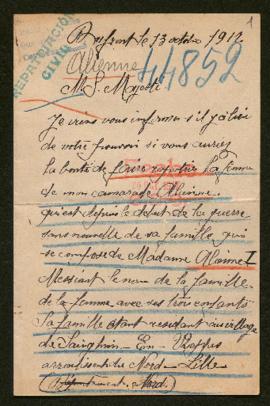 1
Du front le 13 octobre 1917
REPATRIACIÓN
CIVIL
Alienne
44852
M S. Majesté
Je viens vous informer s'il y a lieu
de votre pouvoir si vous auriez
la bonté de faire rapatrier la femme
de mon camarade Alienne
qui est depuis le début de la guerre
sans nouvelle de sa famille, qui
se compose de Madame
le nom de la famille
de la femme avec ses trois enfants
Sa famille étant resident au village
de Sainghin - En - Weppes
arrondissement de Nord - Lille
(Département, Nord)